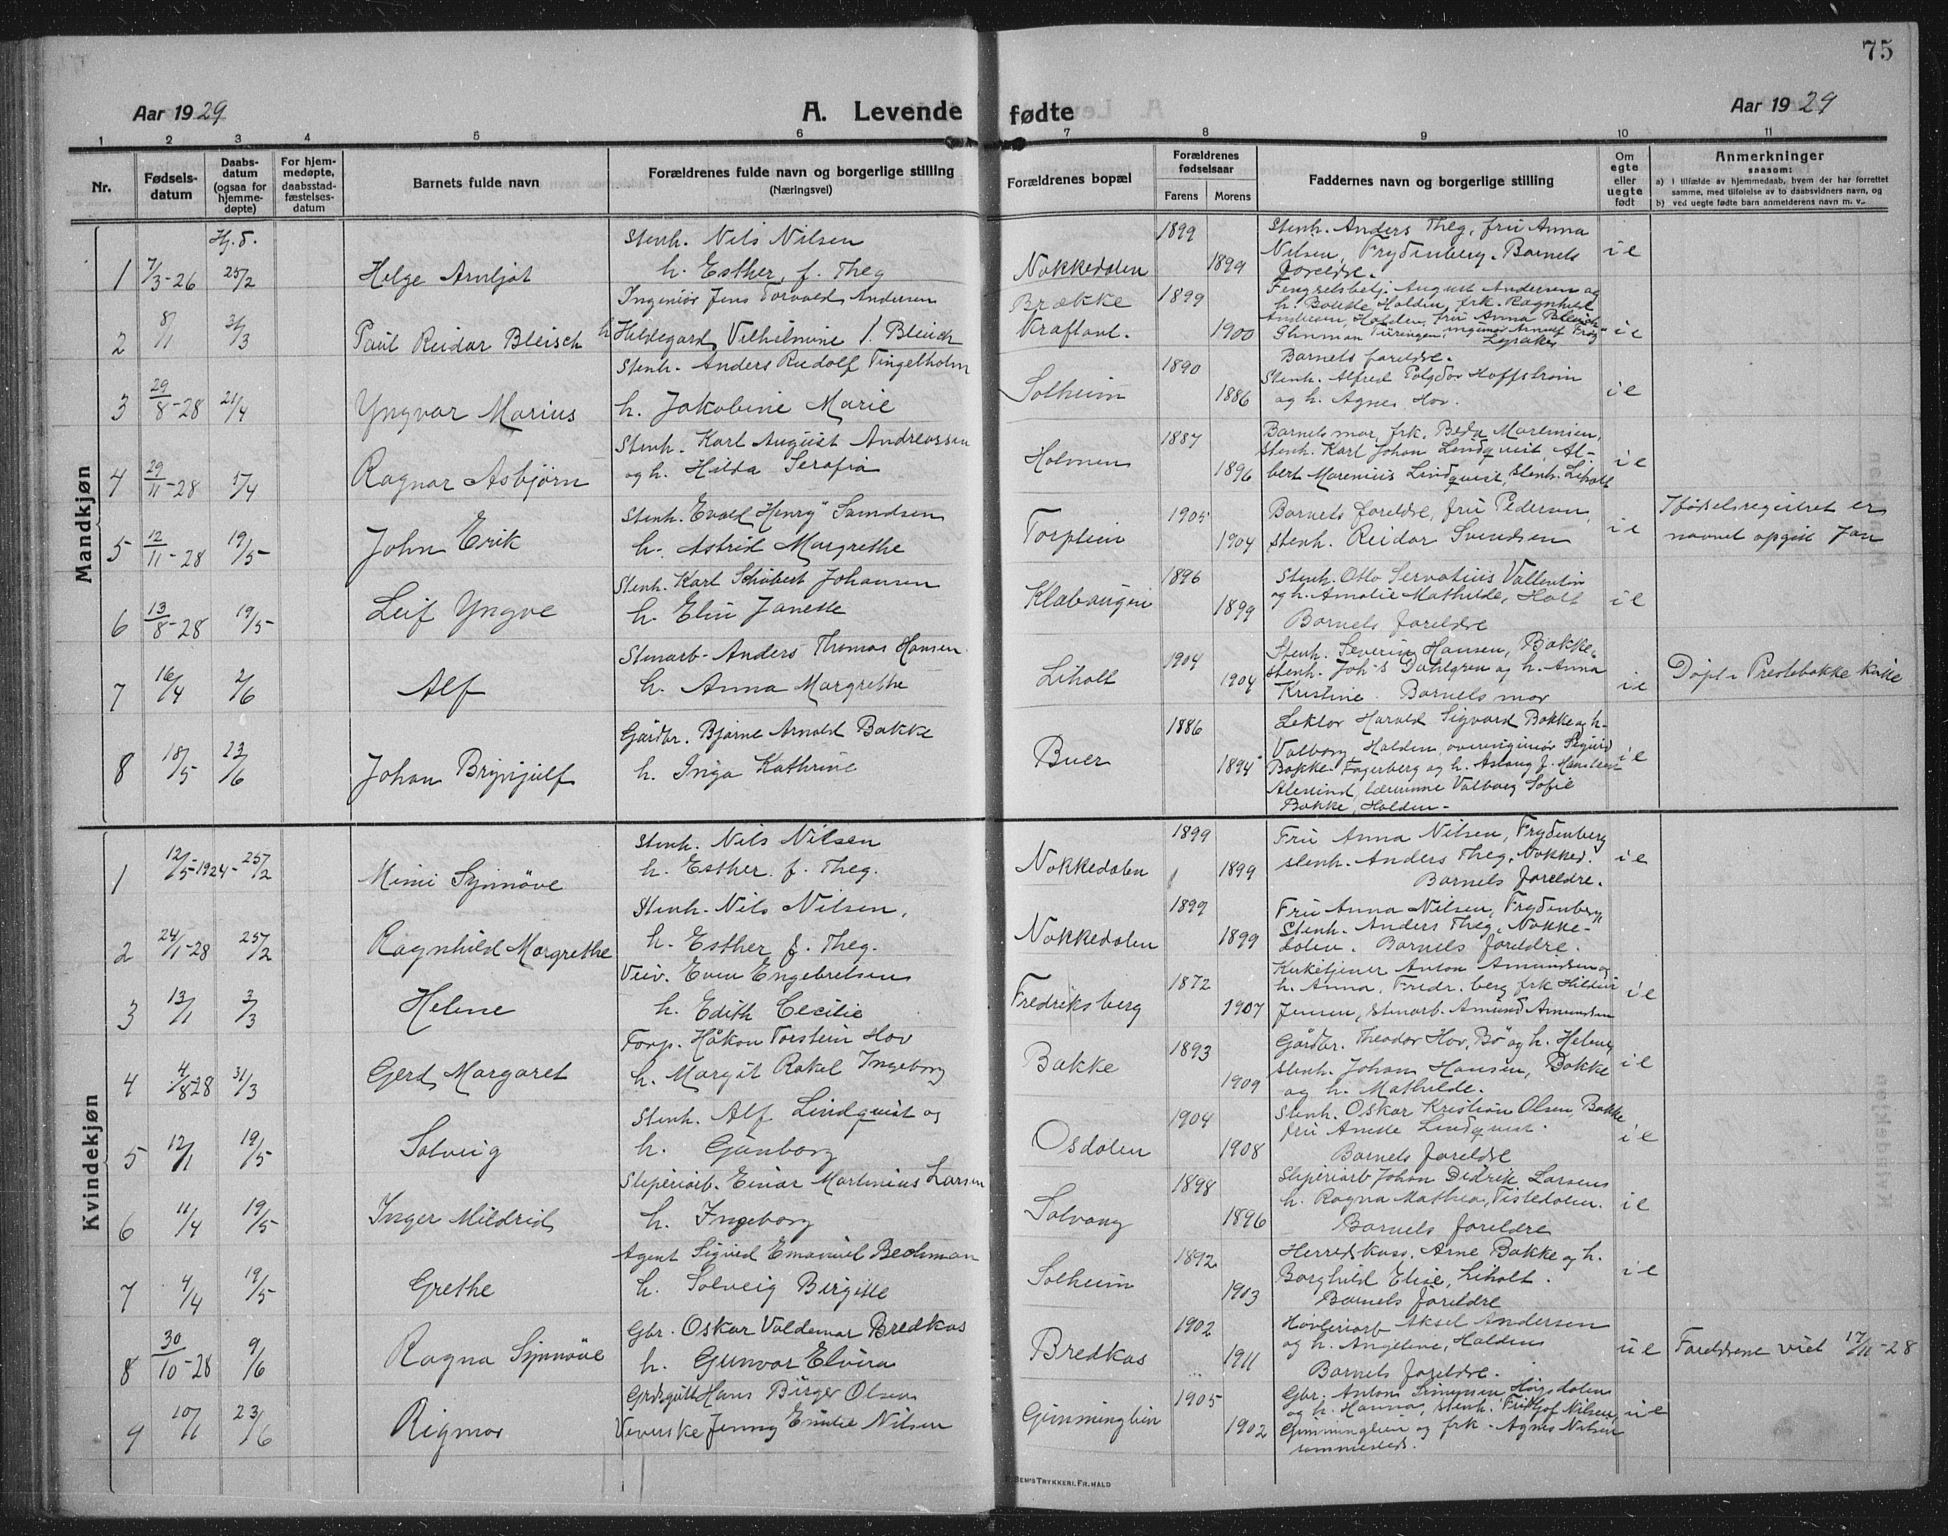 75
Aar 1929
A. Levende fødte
Aar 1929
1 2 3 4 5 6 7 8 9 10 11
Nr.
Fødsels-
datum
Daabs-
datum
(ogsaa for
hjemme-
døpte)
For hjem-
medøpte,
daabsstad-
fæstelses-
datum
Barnets fulde navn
Forældrenes fulde navn og borgerlige stilling
(Næringsvei)
Forældrenes bopæl
Forældrenes
fødselsaar
Farens Morens
Faddernes navn og borgerlige stilling
Om
egte
eller
uegte
født
Anmerkninger
saasom:
a) i tilfælde av hjemmedaab, hvem der har forrettet
samme, med tilføielse av to daabsvidners navn, og
b) ved uegte fødte barn anmelderens navn m. v.
Mandkjøn
Hj. d.
1 7/3-26 25/2 Helge Arnljot
Stenh. Nils Nilsen
h. Esther, f. Theg
Nokkedalen 1899 1899
Stenh. Anders Theg, fru Anna
Nilsen, Frydenberg. Barnets
foreldre.
i e
2 8/1 31/3 Paul Reidar Bleisch
Ingeniør Jens Torvald Andersen
h Hildegard Vilhelmine f. Bleisch
Brække
Kraftanl.
1899 1900
Fengselsbetj. August Andersen og
h. Halden, frk. Ragnhild
Andersen, Halden, fru Anna Bleisch
Türingen, ingeniør
Barnets foreldre.
i e
3 29/8-28 21/4 Yngvar Marius
Stenh. Anders Rudolf Tingelholm
h. Jakobine Marie
Solheim 1890 1886
Stenh. Alfred Koffstrøm
og h. Agnes Hov.
i e
4 29/11-28 1/4 Ragnar Asbjørn
Stenh. Karl August Andreassen
og h. Hilda Serafia
Holmen 1887 1896
Barnets mor, frk. Beda Martinsen,
stenh. Karl Johan Lindquist, Al-
bert Marenius Lindquist, stenh. Liholt
i e
5 12/11-28 19/5 John Erik
Stenh. Evald "Henry" Samdsen
h. Astrid Margrethe
Torplein 1905 1904
Barnets foreldre, fru Pedersen,
stenh. Reidar Svendsen
i e
I fødselsregistret er
navnet opgitt Jan
6 13/8-28 19/5 Leif Yngve
Stenh. Karl Schubert Johansen
h. Elin Janette
Klabaugen 1896 1899
Stenh. Otto Servatius Vallentin
og h. Amalie Mathilde, Holt
Barnets foreldre
i e
7 16/4 2/6 Alf
Stenarb. Anders Thomas Hansen
h. Anna Margrethe
Liholt 1904 1904
Stenh. Severin Hansen, Bakke,
stenh. Joh's Dahlgren og h. Anna
Kristine. Barnets mor
i e
Døpt i Prestebakke kirke
8 18/5 23/6 Johan Brynjulf
Gårdbr. Bjarne Arnold Bakke
h. Inga Kathrine
Buer 1886 1894
Lektor Harald Sigvard Bakke og h.
Valborg, Halden, overingeniør Sigurd
Bakke Fagerberg og h. Aslaug f.
Alesund, lærerinne Valborg Sofie
Bakke, Halden.
i e
Kvindekjøn
1 12/5-1924 25/2 Mimi Synnøve
Stenh. Nils Nilsen
h. Esther f. Theg.
Nokkedalen 1899 1899
Fru Anna Nilsen, Frydenberg
stenh. Anders Theg, Nokked.
Barnets foreldre.
i e
2 24/1-28 25/2 Ragnhild Margrethe
Stenh. Nils Nilsen,
h. Esther f. Theg.
Nokkedalen 1899 1899
Fru Anna Nilsen, Frydenberg,
Stenh. Anders Theg, Nokke-
dalen. Barnets foreldre.
3 13/1 3/3 Helene
Veiv. Even Engebretsen
h. Edith Cecilie
Fredriksberg 1872 1907
Kirketjener Anton Amundsen og
h. Anna, Fredr. berg frk
Jensen, stenarb. Amund Amundsen
i e
4 4/8-28 31/3 Gerd Margaret
Forp. Håkon Torstein Hov
h. Margit Rakel Ingeborg
Bakke 1893 1909
Gårdbr. Theodor Hov, Bø og h. Helene,
stenh. Johan Hansen, Bakke
og h. Mathilde.
i e
5 12/1 19/5 Solveig
Stenh. Alf Lindquist og
h. Gunborg
Osdalen 1904 1908
Stenh. Oskar Kristian Olsen, Bakke
fru Anette Lindquist.
Barnets foreldre
i e
6 11/4 19/5 Inger Mildrid
Sliperiarb. Einar Martinius Larsen
h. Ingeborg
Solvang 1898 1896
Sliperiarb Johan Didrik Larsen
h. Ragna Mathea, Tistedalen.
Barnets foreldre
i e
7 4/4 19/5 Grethe
Agent Sigurd Emanuel Beckman
h. Solveig Birgitte
Solheim 1892 1903
Herredskass. Arne Bakke og h.
Borghild Elise, Liholt.
Barnets foreldre
i e
8 30/10-28 9/6 Ragna Synnøve
Gbr. Oskar Valdemar Bredkas
h. Gunvor Elvira
Bredkas 1902 1911
Høvleriarb Aksel Andersen
og h. Angeline, Haldens
Barnets foreldre.
u e
Foreldrene viet 17/11-28
9 10/1 23/6 Rigmor
Gårdsgutt Hans Birger Olsen
Veverske Jenny Emilie Nilsen
Gimminglien 1905 1902
Gbr. Anton Simensen, Høgsdalen
og h. Hanna, stenh. Fritjof Nilsen,
Gimminglien og frk. Agnes Nilsen
sammesteds.
u e
Trykkeri, Fr.hald